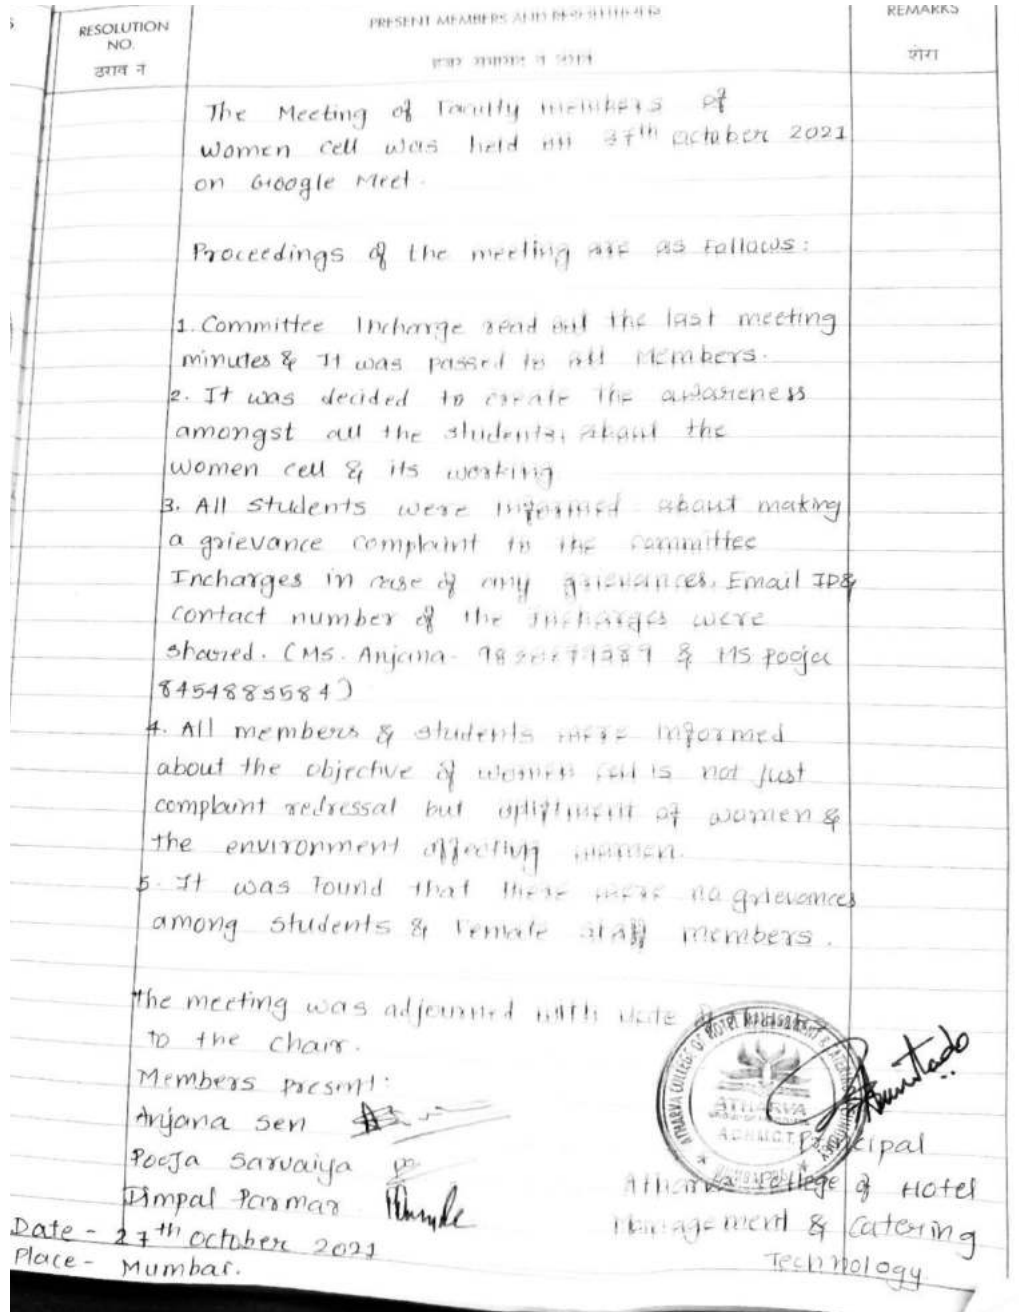 RESOLUTION NO.
ठराव नं
PRESENT MEMBERS AND
REMARKS
शेरा
The Meeting of Faculty members of
women cell was held on 27th october 2021
on Google Meet.
Proceedings of the meeting are as follows:
1. Committee Incharge read out the last meeting
minutes & It was passed to all Members.
2. It was decided to create the awareness
amongst all the students, about the
women cell & its working
3. All students were informed about making
a grievance complaint to the committee
Incharges in case of any grievances. Email ID&
contact number of the Incharges were
shared. (Ms. Anjana- & MS Pooja
8454885584)
4. All members & students were informed
about the objective of women cell is not just
complaint redressal but upliftment of women &
the environment affecting women.
5. It was found that there were no grievances
among students & Female staff members.
The meeting was adjourned with vote
to the chair.
Members present:
Anjana Sen
Pooja Sarvaiya
Dimpal Parmar
Date - 27th october 2021
Place- Mumbai.
ATHARVA COLLEGE OF HOTEL MANAGEMENT & CATERING TECHNOLOGY
ATHARVA
A.C.H.M.C.T.
Principal
Atharva College of Hotel
Management & Catering
Technology